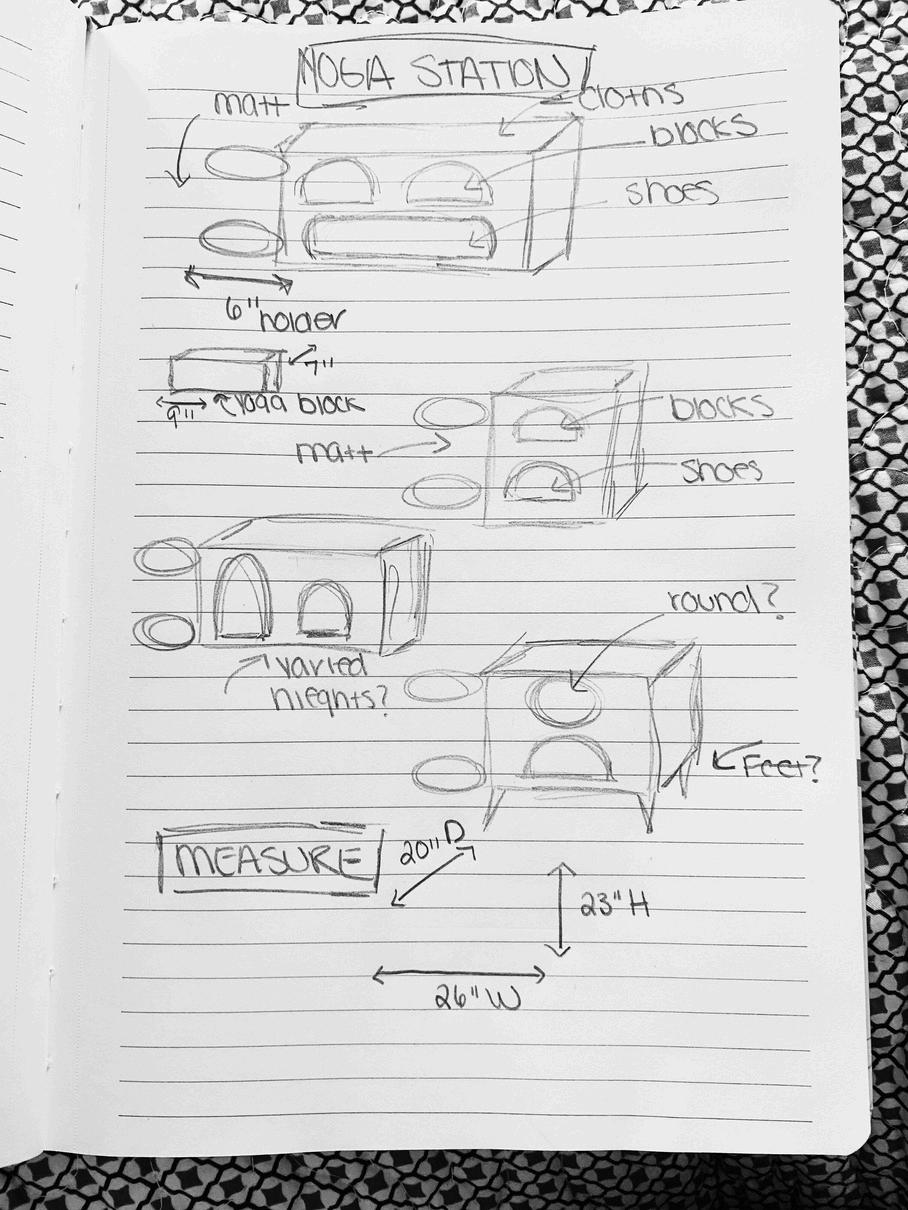 YOGA STATION
matt
cloths
blocks
shoes
6" holder
7"
9"
yoga block
blocks
matt
shoes
round?
varied
hieghts?
Feet?
MEASURE
20" D
23" H
26" W